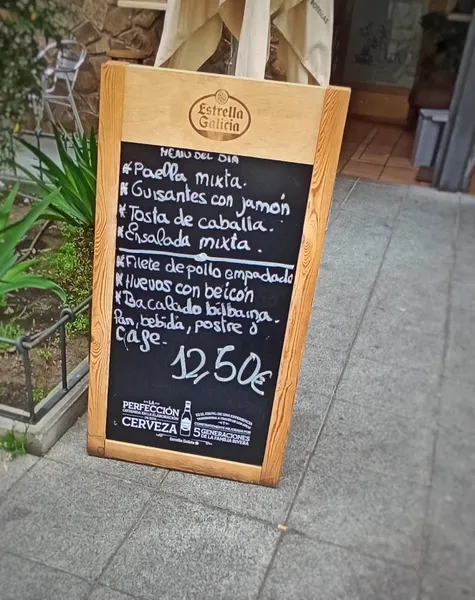 Estrella
Galicia
MENÚ DEL DIA
* Paella mixta.
* Guisantes con jamón
* Tosta de caballa.
* Ensalada mixta.
* Filete de pollo empanado
* Huevos con beicon
* Bacalado bilbaina.
Pan, bebida, postre o
Cafe.
12,50€
LA
PERFECCIÓN
CERVEZA
5 GENERACIONES
DE LA FAMILIA RIVERA
Estrella Galicia